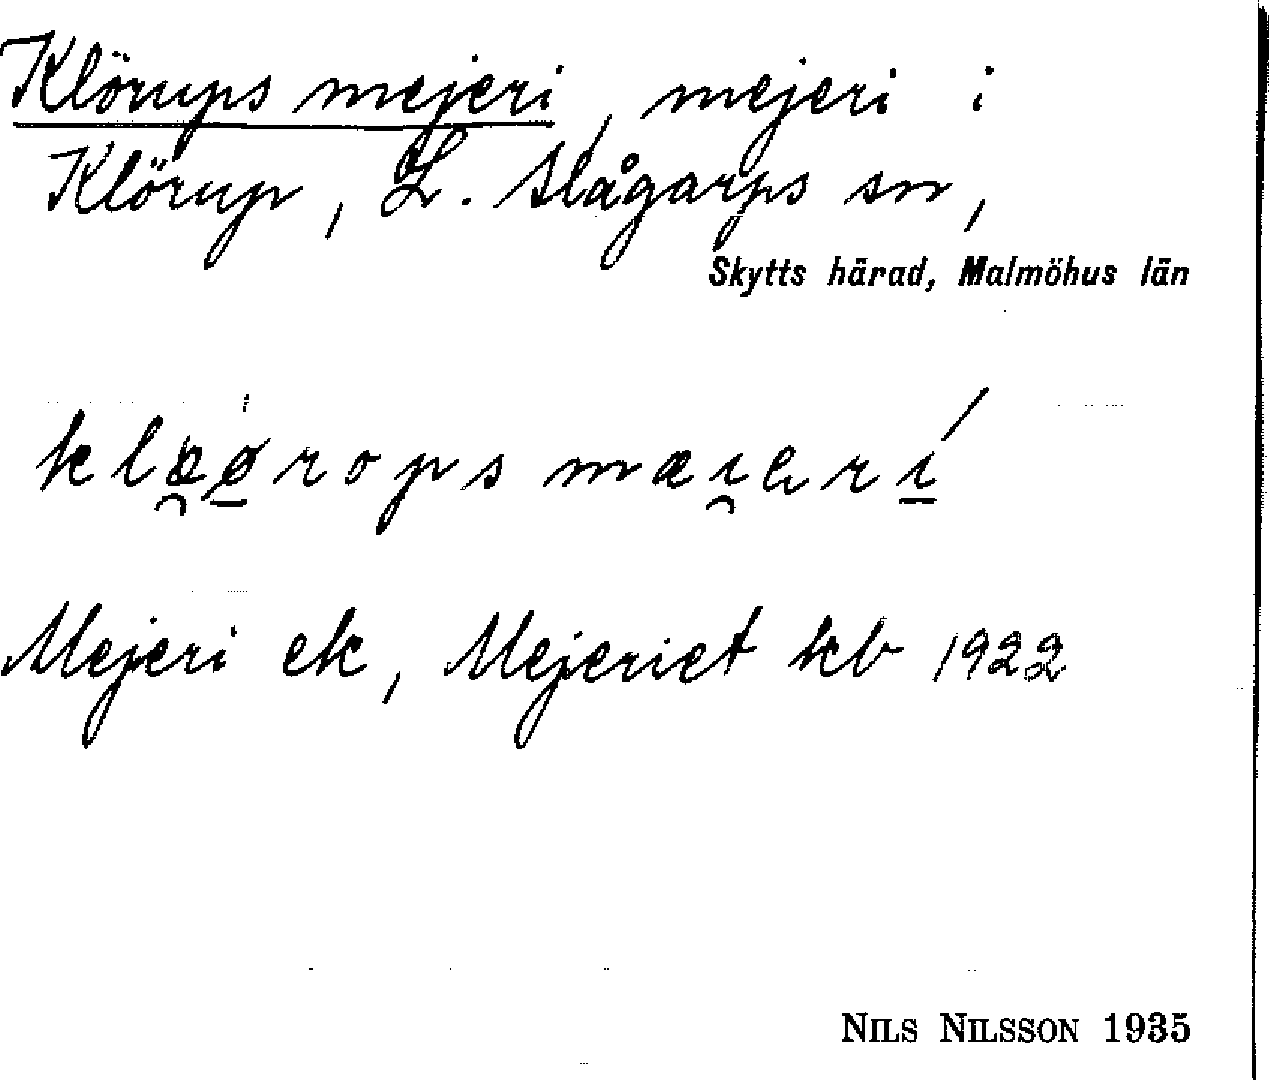 Klörups mejeri, mejeri i
Klörup, L. Slågarps sn,
Skytts härad, Malmöhus län
klæ̯ø̱rops mæı̯ərı̱́
Mejeri ek, Mejeriet kb 1922
NILS NILSSON 1935